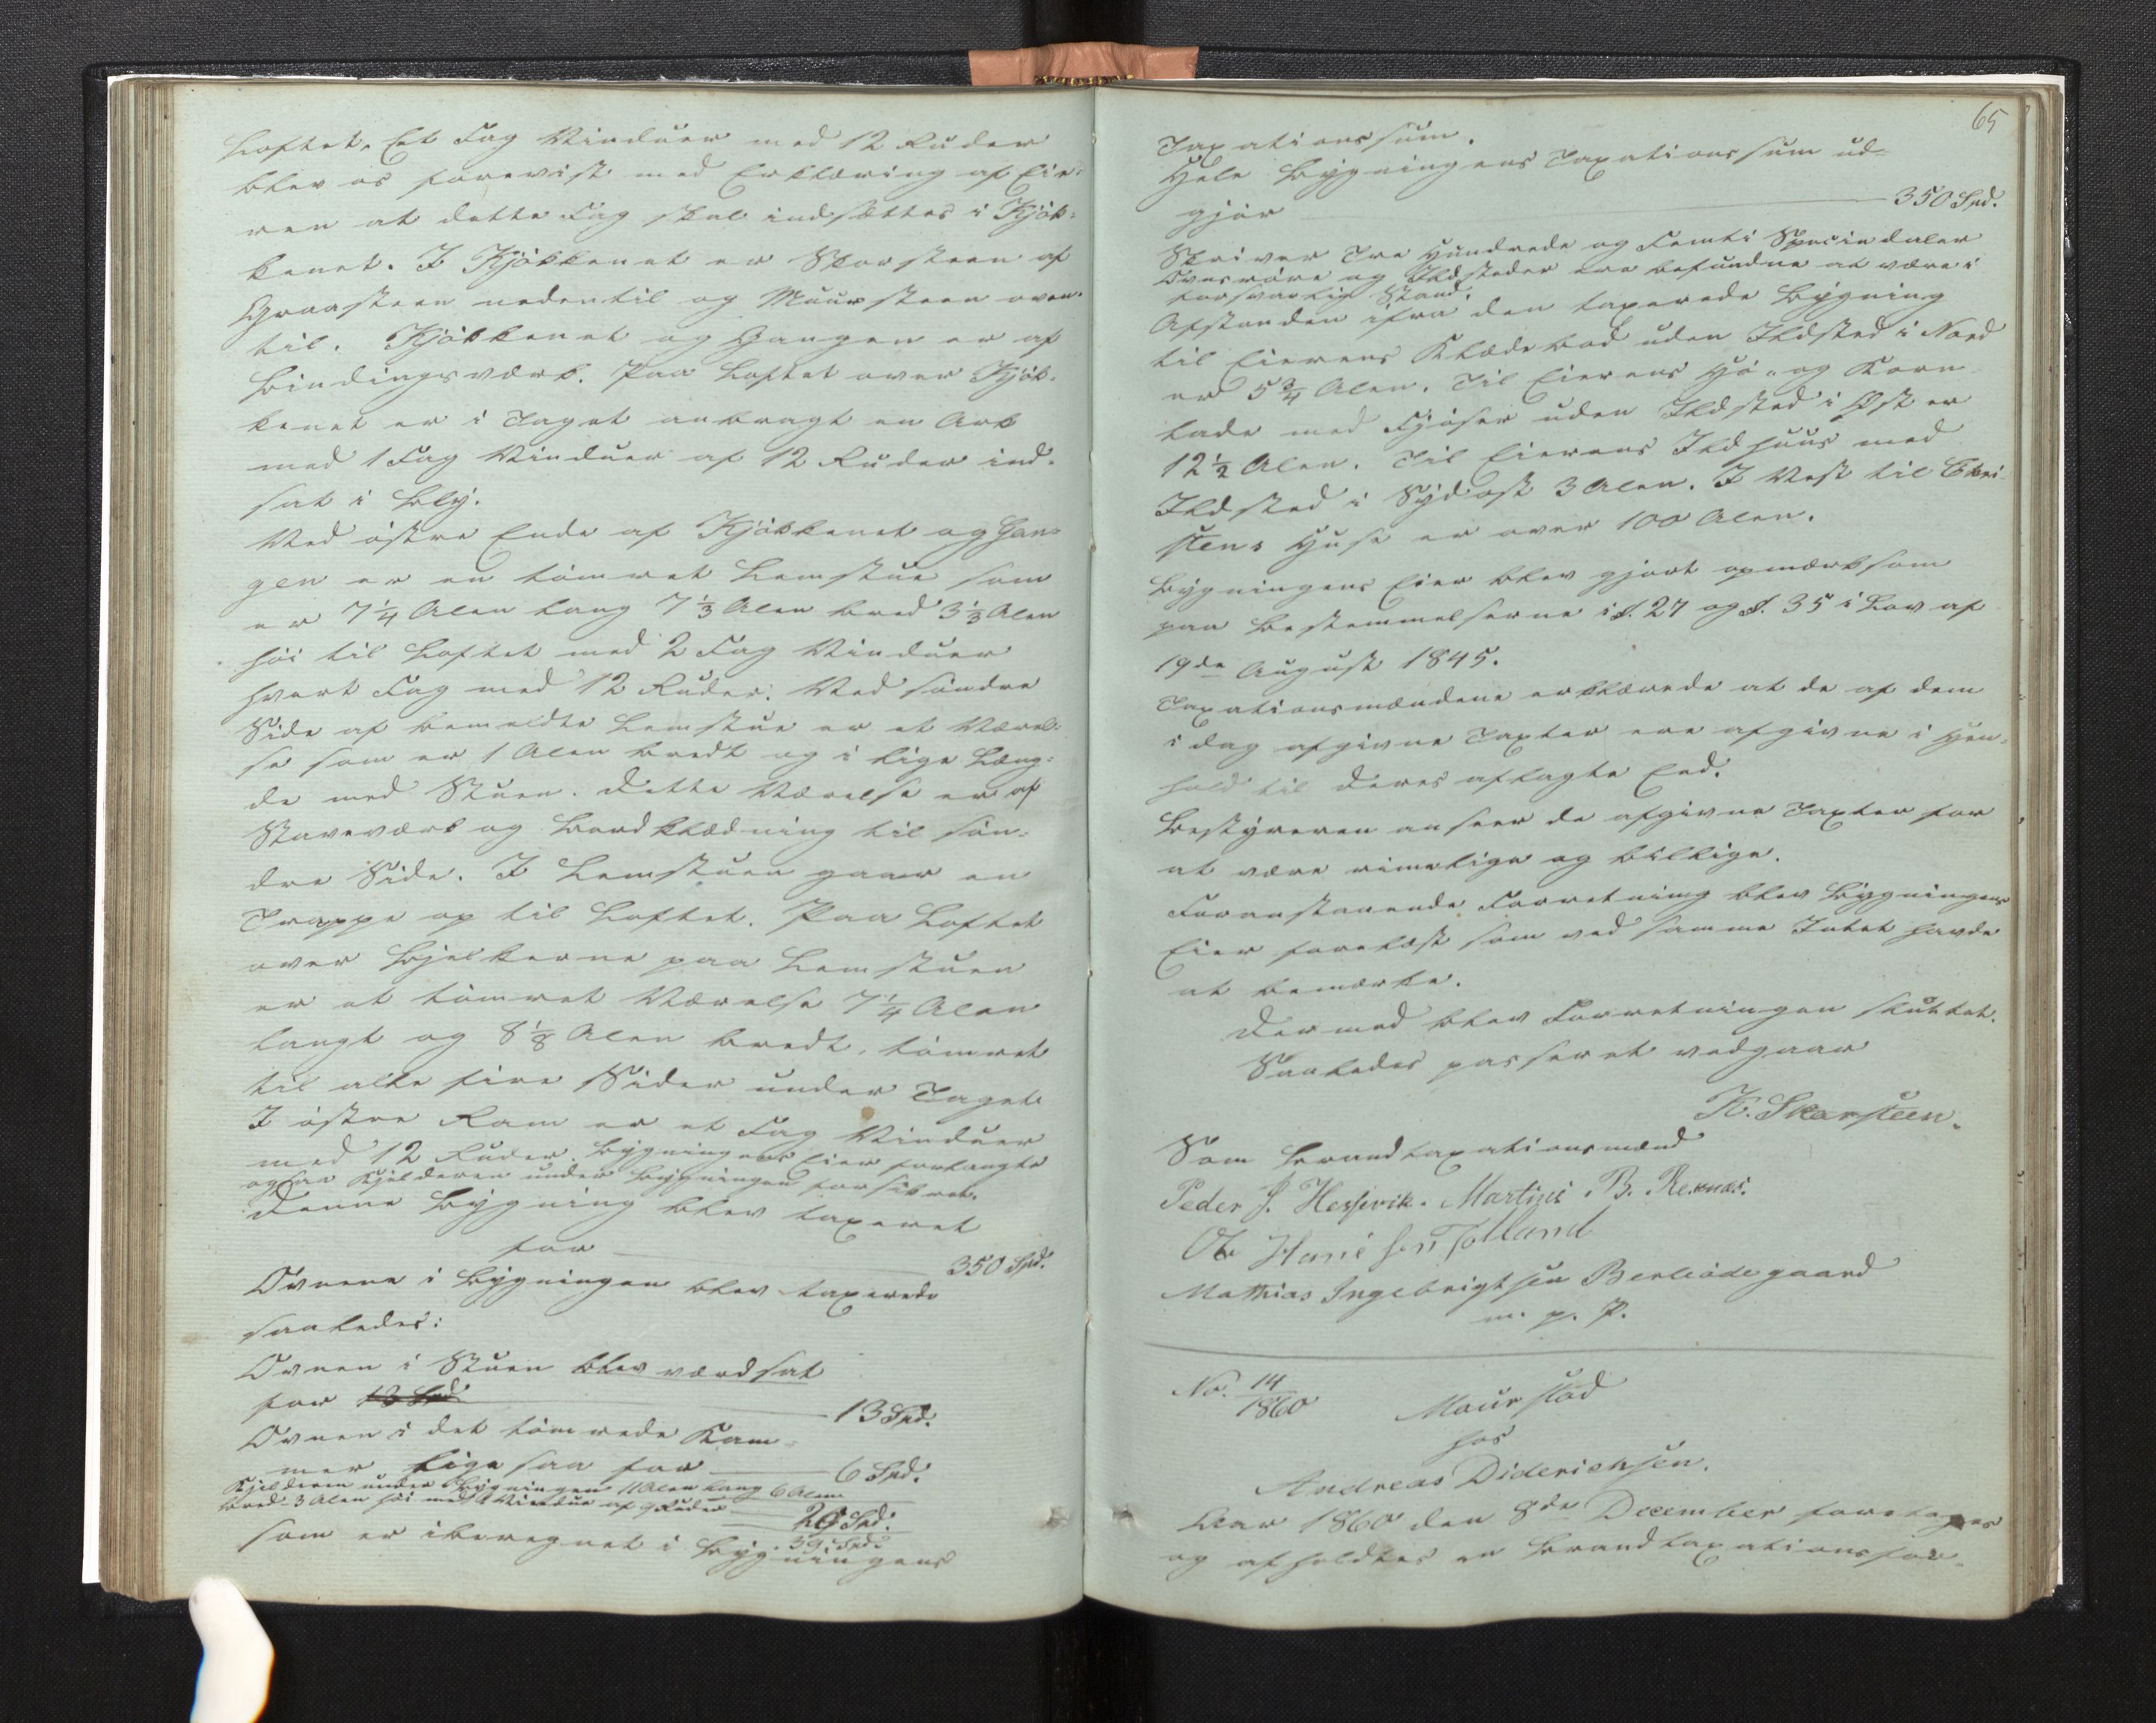 Loftet. Et Fag Vinduer med 12 Ruder
blev os forevist med Erklæring af Eie-
ren at dette Fag skal indsættes i Kjøk-
kenet. I Kjøkkenet er Skorsteen af
Graasteen nedentil og Muursteen oven-
til. Kjøkkenet og Gangen er af
Bindingsværk. Paa Loftet over Kjøk-
kenet er i Taget anbragt en Ark
med 1 Fag Vinduer af 12 Ruder ind-
sat i Bly.
Ved østre Ende af Kjøkkenet og Gan-
gen er en tømret Lemstue som
er 7 1/4 Alen lang 7 1/3 Alen bred 3 1/3 Alen
høi til Loftet med 2 Fag Vinduer
hvert Fag med 12 Ruder. Ved søndre
Side af bemeldte Lemstue er et Værel-
se som er 1 Alen bredt og i lige Læng-
de med Stuen. Dette Værelse er af
Staveværk og Bordklædning til søn-
dre Side. I Lemstuen gaar en
Trappe op til Loftet. Paa Loftet
over Bjelkerne paa Lemstuen
er et tømret Værelse 7 1/4 Alen
langt og 8 1/8 Alen bredt, tømret
til alle fire Sider under Taget
I østre Ram er et Fag Vinduer
med 12 Ruder. Bygningens Eier forlangte
ogsaa Kjelderen under Bygningen forsikret.
Denne Bygning blev taxeret
for 350 Spd.
Ovnene i Bygningen blev taxerede
saaledes:
Ovnen i Stuen blev værdsat
for 13 Spd. 13 Spd.
Ovnen i det tømrede Kam-
mer ligesaa for 6 Spd.
Kjelderen under Bygningen 11 Alen lang 6 Alen
bred 3 Alen høi med 1 Vindue af 9 Ruder
20 Spd.
39 Spd.
som er iberegnet i Bygningens
65
Taxationssum.
Hele Bygningens Taxationssum ud-
gjør 350 Spd.
Skriver Tre Hundrede og Femti Speciedaler
Ovnsrøre og Ildsteder ere befundne at være i
forsvarlig Stand.
Afstanden ifra den taxerede Bygning
til Eierens Klædebod uden Ildsted i Nord
er 5 3/4 Alen. Til Eierens Hø- og Korn-
lade med Fjøser uden Ildsted i Øst er
12 1/2 Alen. Til Eierens Ildhuus med
Ildsted i Sydost 3 Alen. I Vest til Chri-
stens Huse er over 100 Alen.
Bygningens Eier blev gjort opmærksom
paa Bestemmelserne i §. 27 og §. 35 i Lov af
19de August 1845.
Taxationsmændene erklærede at de af dem
i dag afgivne Taxter ere afgivne i Hen-
hold til deres aflagte Eed.
Bestyreren anseer de afgivne Taxter for
at være rimelige og billige.
Foranstaaende Forretning blev Bygningens
Eier forelæst som ved samme Intet havde
at bemærke.
Dermed blev Forretningen sluttet.
Saaledes passeret vedgaar
K. Skarsteen.
Som Brandtaxationsmænd
Peder J. Hessevik. Martines B. Rexnæs.
Ole Hansen Tolland
Mathias Ingebrigtsen Berleødegaard
m. p. P.
No. 14/1860 Maurstad
hos
Andreas Diderichsen.
Aar 1860 den 8de December foretoges
og afholdtes en Brandtaxationsfor-